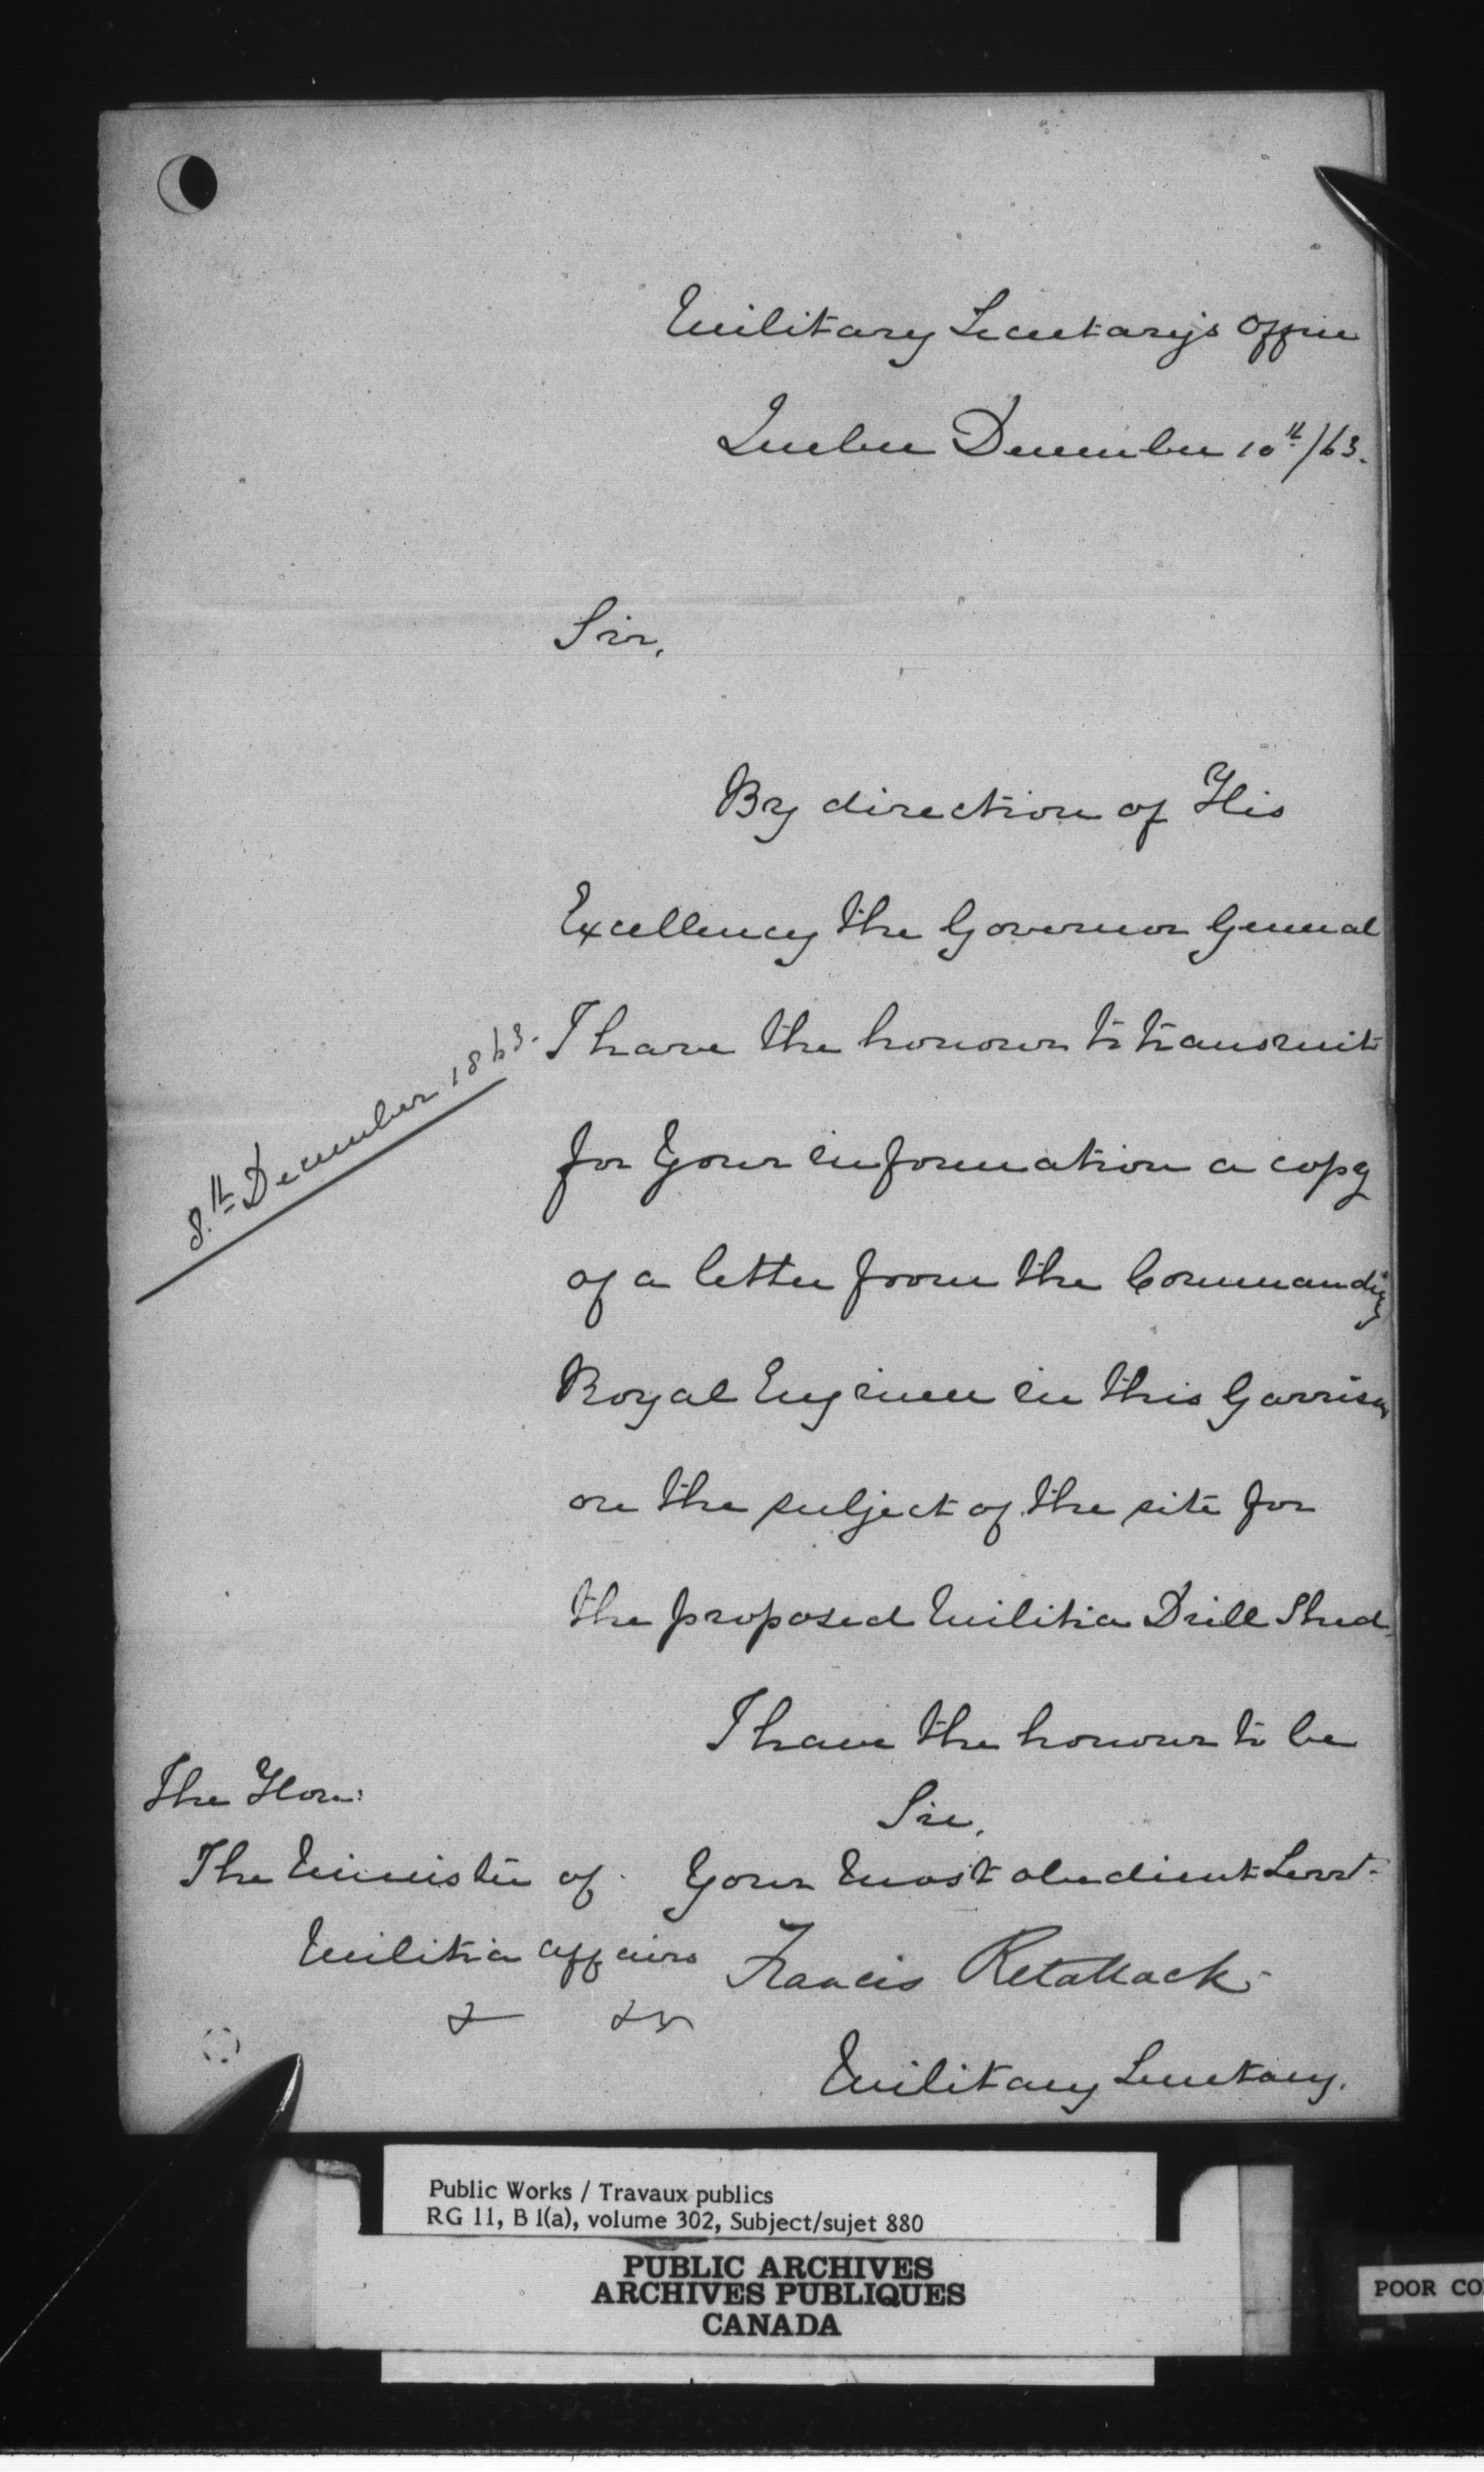 Military Secretary's Office
Quebec December 10th/63.
Sir,
By direction of His
Excellency the Governor General
I have the honour to transmit
8th December 1863.
for Your information a copy
of a letter from the Commanding
Royal Engineer in this Garrison
on the subject of the site for
the proposed Militia Drill Shed.
I have the honour to be
Sir,
Your Most obedient Servt.
Francis Retallack
Military Secretary.
The Hon:
The Minister of
Militia Affairs
& &c
Public Works / Travaux publics
RG 11, B 1(a), volume 302, Subject/sujet 880
PUBLIC ARCHIVES
ARCHIVES PUBLIQUES
CANADA
POOR CO